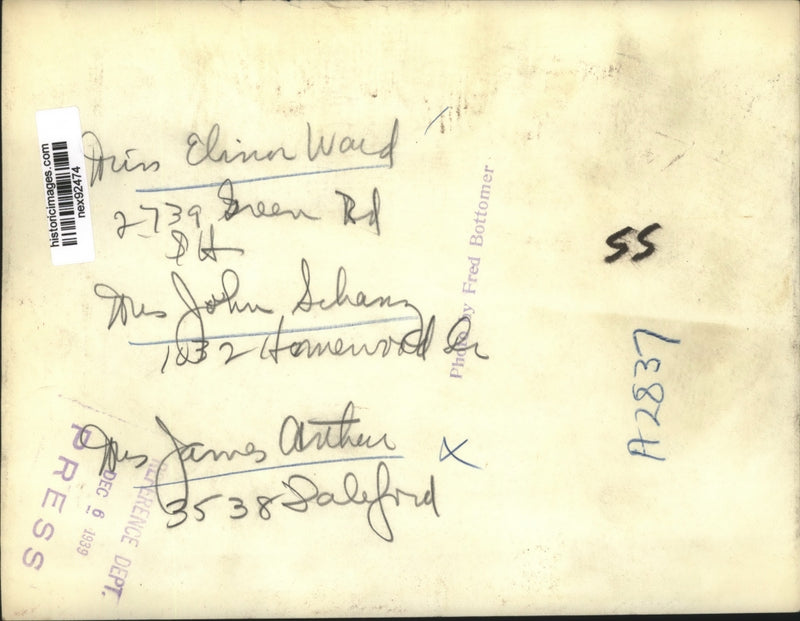 historicimages.com
nex92474
Miss Elinor Ward
2739 Green Rd
SH
Mrs John Schanz
1832 Homewood Dr
Mrs James Arthur X
3538 Daleford
Photo by Fred Bottomer
SS
A2837
REFERENCE DEPT.
DEC 6 1939
PRESS